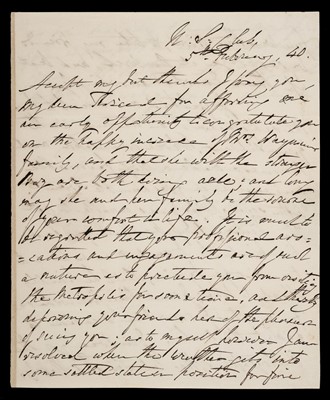 U: S: Club,
5th February, 40.
Accept my best thanks I pray you,
My dear Friend, for affording me
an early opportunity to congratulate you
on the happy increase of Mrs.
family, and that she with the stranger
are both doing well; and long
may she and her family be the source
of your comfort in life. It is much to
be regretted that your professional avo-
cations and engagements are of such
a nature as to preclude you from visiting
the Metropolis for some time, and thereby
depriving your friends here of the pleasure
of seeing you: as to myself however I am
resolved when the weather gets into
some settled state or position for fine